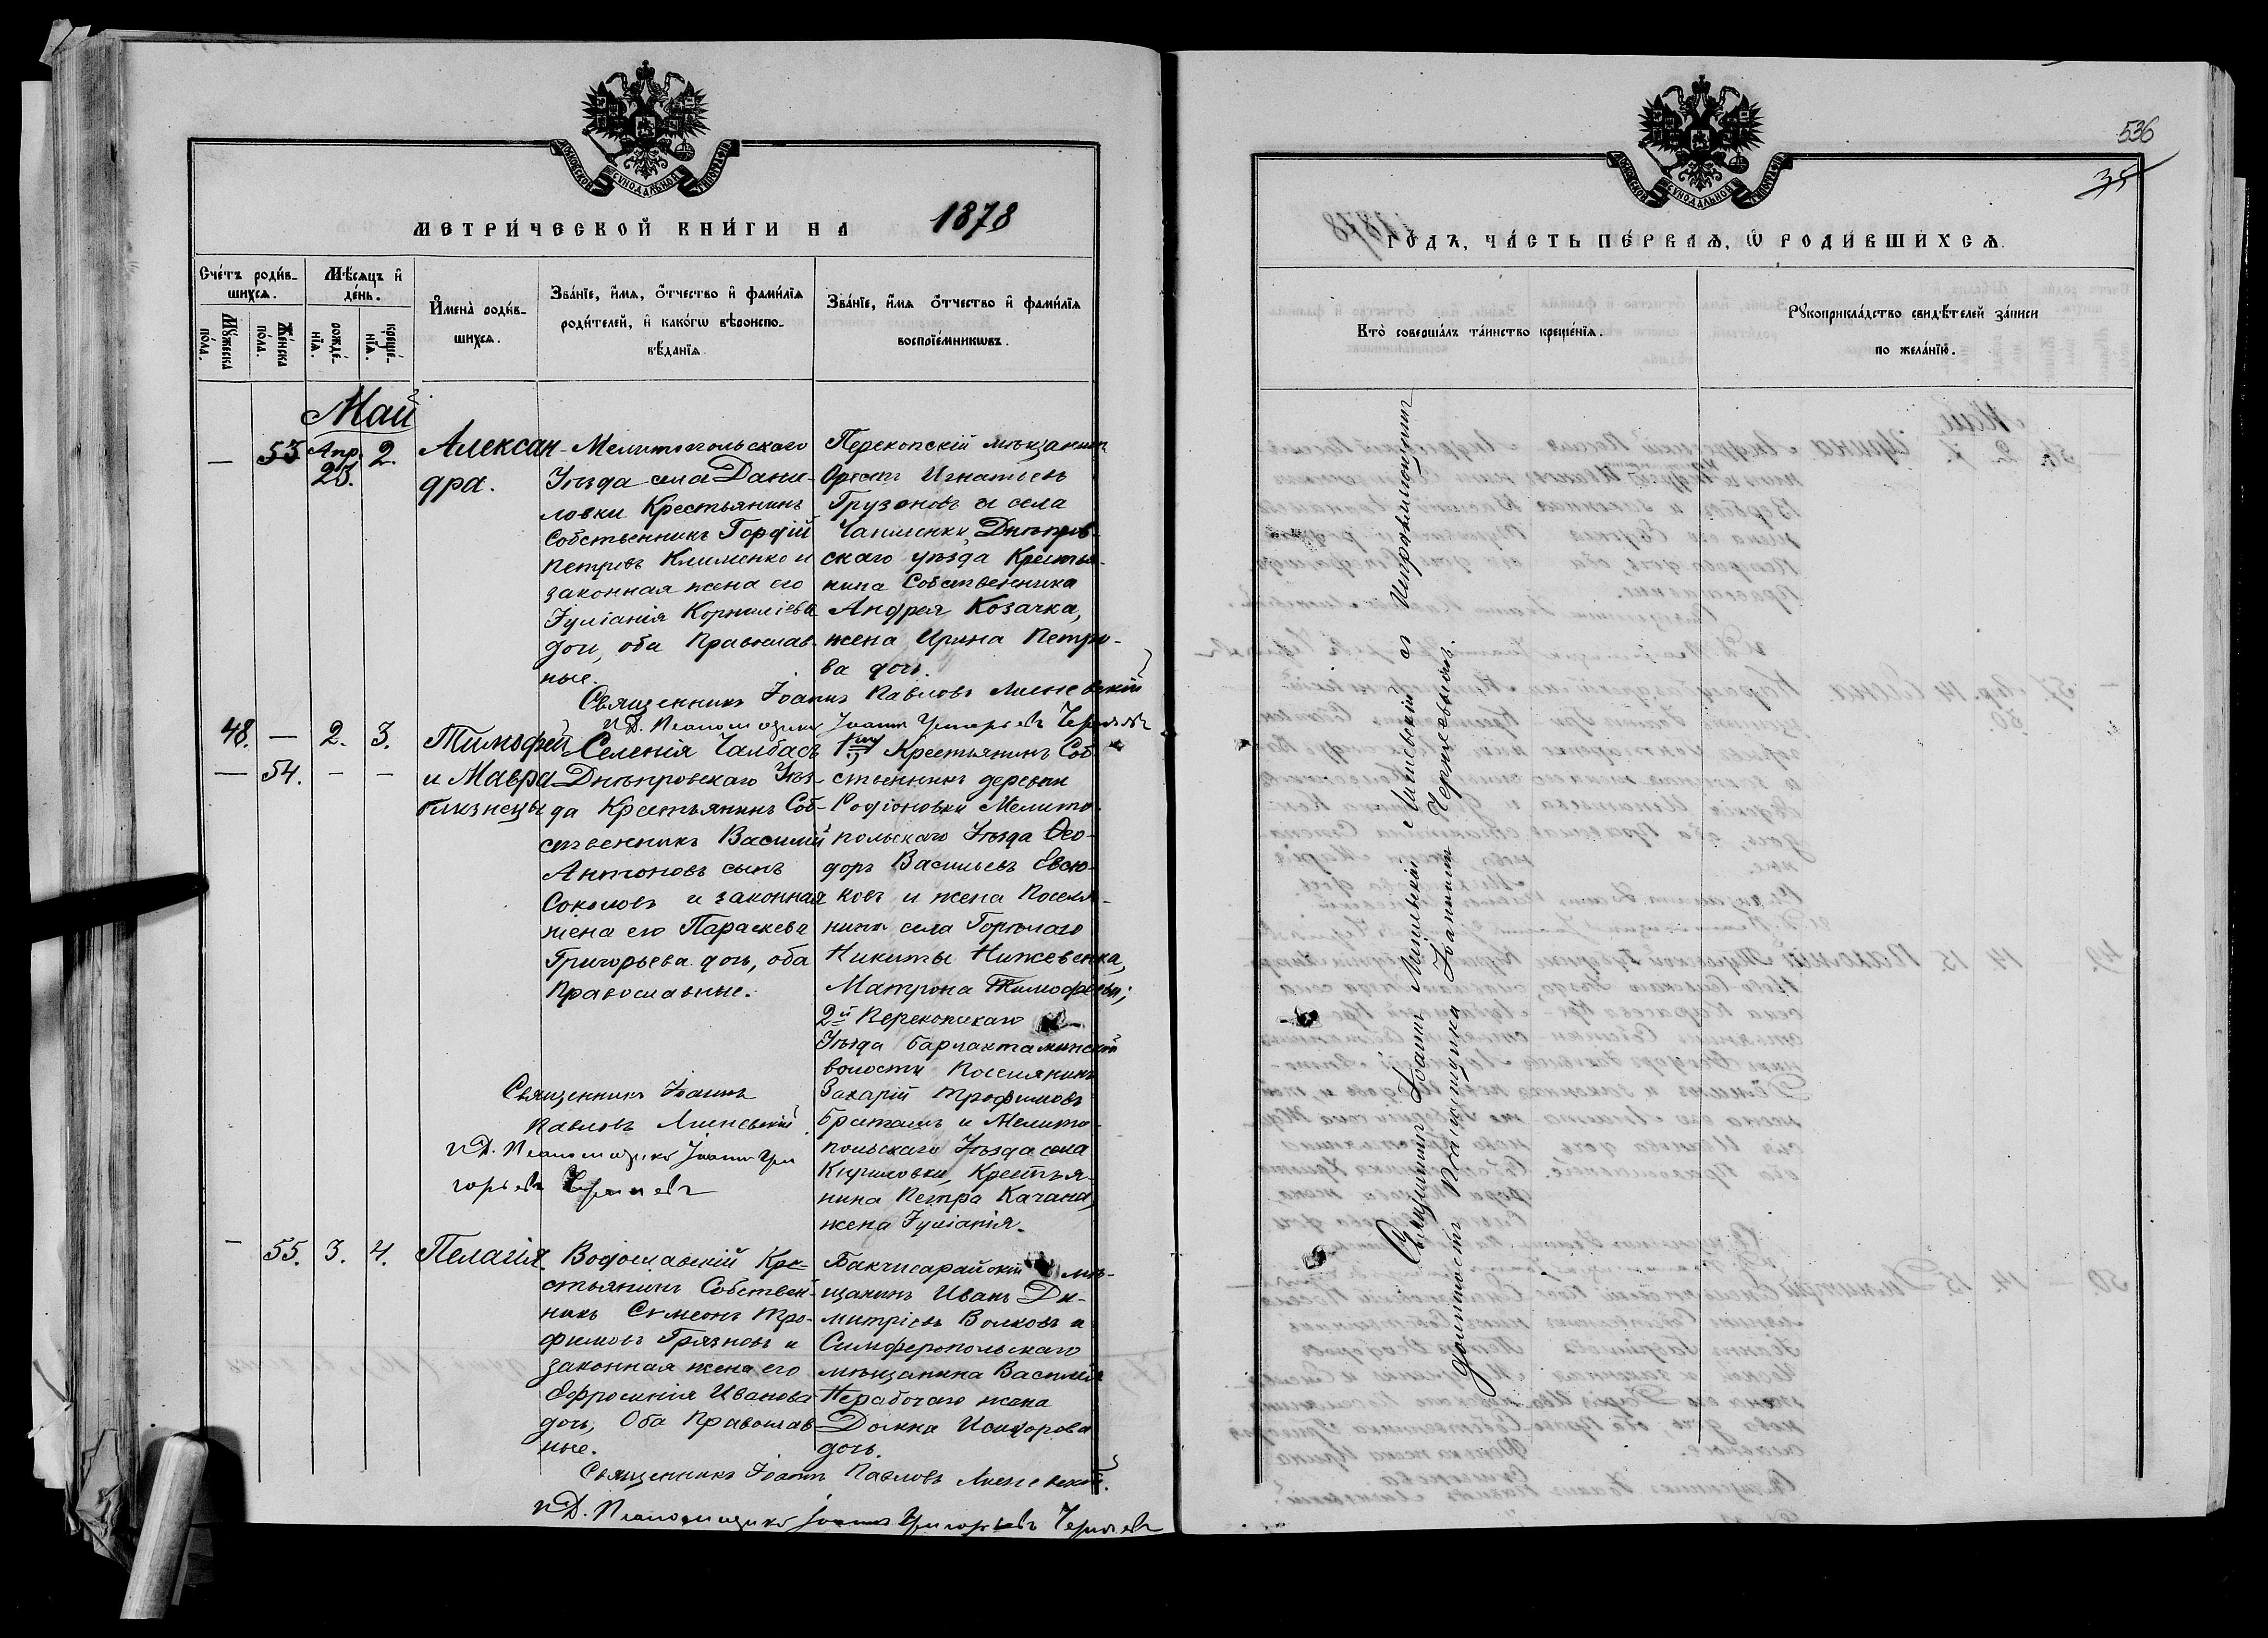 МЕТРИ́ЧЕСКОЙ КНИ́ГИ НА 1878
Сче́тъ роди́в-
шихся.
Мѣ́сяцъ и҆
де́нь.
Мꙋ́жеска
по́ла.
Же́нска
по́ла.
рожде́-
нїѧ.
креще́-
нїѧ.
И҆мена̀ роди́в-
шихся.
Зва́нїе, и҆́мя, ѻ҆́тчество и҆ фами́лїя
роди́телей, и҆ како́гѡ вѣроиспо-
вѣ́данїя
Зва́нїе, и҆́мя ѻ҆́тчество и҆ фами́лїя
воспрїе́мникѡвъ.
Май
— 53 Апр. 25. 2. Алексан-
дра.
Мелитопольскаго
Уѣзда села Дани-
ловки Крестьянинъ
Собственникъ Гордій
Петровъ Клименко и
законная жена его
Іуліанія Корниліева
дочь, оба Православ-
ные.
Перекопскій мѣщанинъ
Орестъ Игнатьевъ
Грузоновъ и села
Чаплинки, Днѣпров-
скаго уѣзда Крестья-
нина Собственника
Андрея Козачка,
жена Ирина Петро-
ва дочь.
Священникъ Іоаннъ Павловъ
И.Д. Псаломщика Іоаннъ Григорьевъ
48. — 2. 3. Тимофей
— 54. - - и Мавра
близнецы
Селенія Чалбасъ
Днѣпровскаго Уѣз-
да Крестьянинъ Соб-
ственникъ Василій
Антоновъ сынъ
Соколовъ и законная
жена его Параскева
Григорьева дочь, оба
Православные.
1хъ Крестьянинъ Соб-
ственникъ деревни
Родіоновки Мелито-
польскаго Уѣзда Ѳео-
доръ Васильевъ Евсю-
ковъ и жена Поселя-
нина села Горѣлаго
Никиты Нижевенка,
Матрона Тимофеева;
2й Перекопскаго
Уѣзда
волости Поселянинъ
Захарій Трофимовъ
и Мелито-
польскаго Уѣзда села
Кириловки, Крестья-
нина Петра Качана,
жена Іуліанія.
Священникъ Іоаннъ
Павловъ
И.Д. Псаломщика Іоаннъ Гри
горьевъ
— 55. 3. 4. Пелагія.
Водославскій Кре-
стьянинъ Собствен-
никъ Сѵмеонъ Тро-
фимовъ Грязновъ и
законная жена его
Ефросинія Иванова
дочь, Оба Православ-
ные.
Бахчисарайскій мѣ-
щанинъ Иванъ Ди-
митріевъ Волковъ и
Симферопольскаго
мѣщанина Василія
Нерабочаго жена
Домна Исидорова
дочь.
Священникъ Іоаннъ Павловъ
И.Д. Псаломщика Іоаннъ Григорьевъ
536
35
ГО́ДЪ, ЧА́СТЬ ПЕ́РВАЯ, Ѡ҆ РОДИ́ВШИХСЯ.
Кто̀ соверша́лъ та́инство креще́нїя.
Рꙋкоприкла́дство свидѣ́телей за́писи
по жела́нїю.
Священникъ Іоаннъ съ Исправляющимъ
должность Псаломщика Іоанномъ